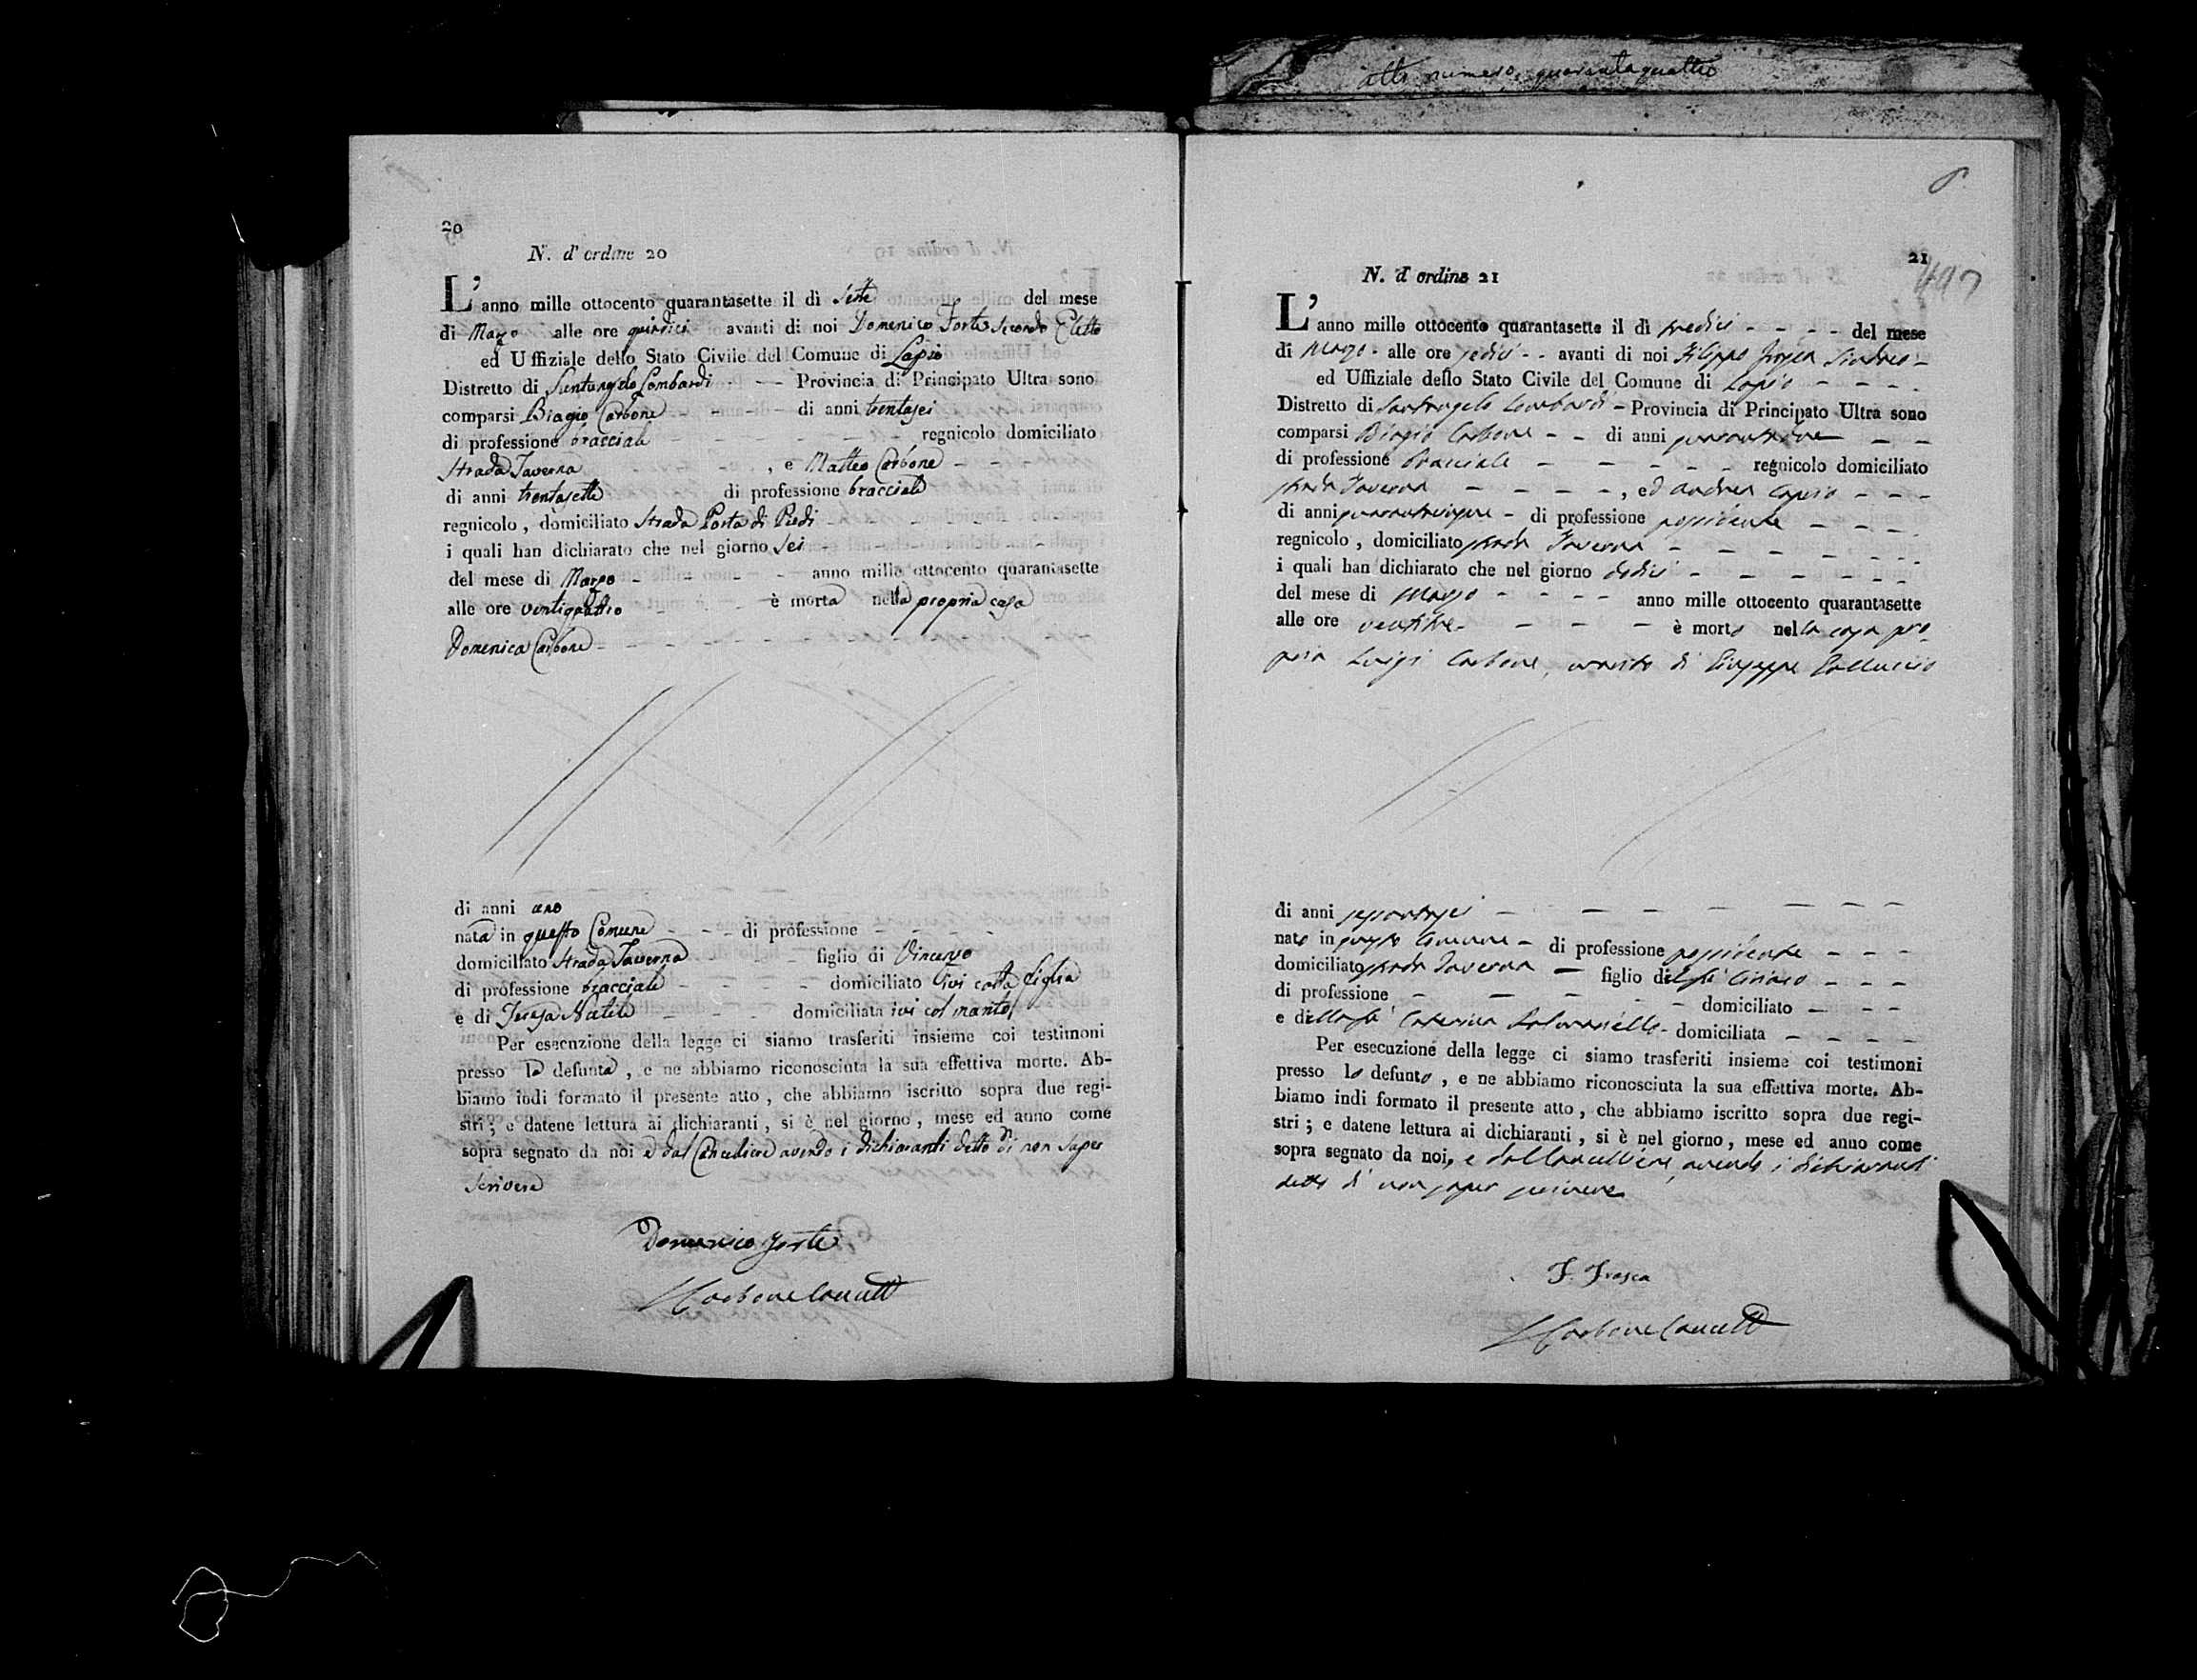 atto numero quarantaquattro
20
N. d' ordine 20
L'anno mille ottocento quarantasette il dì sette del mese
di Marzo alle ore quindici avanti di noi Domenico Forte secondo Eletto
ed Uffiziale dello Stato Civile del Comune di Lapio
Distretto di Santangelo Lombardi — Provincia di Principato Ultra sono
comparsi Biagio Carbone - - - di anni trentasei
di professione bracciale - - - - - regnicolo domiciliato
Strada Taverna - - , e Matteo Carbone - - -
di anni trentasette di professione bracciale
regnicolo , domiciliato Strada Porta di Piedi - - - -
i quali han dichiarato che nel giorno sei - - - -
del mese di Marzo - - - - anno mille ottocento quarantasette
alle ore ventiquattro - - - è morta nella propria casa
Domenica Carbone - - - - - -
di anni uno
nata in questo Comune - - - di professione - - - -
domiciliato Strada Taverna - - - figlio di Vincenzo
di professione bracciale - - - - domiciliato ivi colla figlia
e di Teresa Natale - - - domiciliata ivi col marito
Per esecuzione della legge ci siamo trasferiti insieme coi testimoni
presso la defunta , e ne abbiamo riconosciuta la sua effettiva morte. Ab-
biamo indi formato il presente atto , che abbiamo iscritto sopra due regi-
stri ; e datene lettura ai dichiaranti , si è nel giorno , mese ed anno come
sopra segnato da noi e dal Cancelliere avendo i dichiaranti detto di non saper
scrivere
Domenico Forte
Carbone Cancell
21
497
N. d' ordine 21
L'anno mille ottocento quarantasette il dì tredici - - - - del mese
di Marzo - alle ore sedici - - avanti di noi Filippo Frasca Sindaco -
ed Uffiziale dello Stato Civile del Comune di Lapio - - - -
Distretto di Santangelo Lombardi - Provincia di Principato Ultra sono
comparsi Biagio Carbone - - di anni - -
di professione Bracciale - - - - - regnicolo domiciliato
strada Taverna - - - - , ed Andrea - - -
di anni quarantacinque - di professione possidente - - - -
regnicolo , domiciliato strada Taverna - - - - - -
i quali han dichiarato che nel giorno dodici - - - - - -
del mese di Marzo - - - - anno mille ottocento quarantasette
alle ore ventitre - - - - - è morto nella casa pro-
pria Luigi Carbone, marito di Giuseppa Colluccio
di anni sessantasei - - - - - - -
nato in questo Comune - di professione possidente - - -
domiciliato strada Taverna - figlio del fu Ciriaco - - -
di professione - - - - - domiciliato - - -
e della fu Caterina - domiciliata - - - -
Per esecuzione della legge ci siamo trasferiti insieme coi testimoni
presso lo defunto , e ne abbiamo riconosciuta la sua effettiva morte. Ab-
biamo indi formato il presente atto , che abbiamo iscritto sopra due regi-
stri ; e datene lettura ai dichiaranti , si è nel giorno , mese ed anno come
sopra segnato da noi, e dal Cancelliere, avendo i dichiaranti
detto di non saper scrivere
F. Frasca
Carbone Cancell